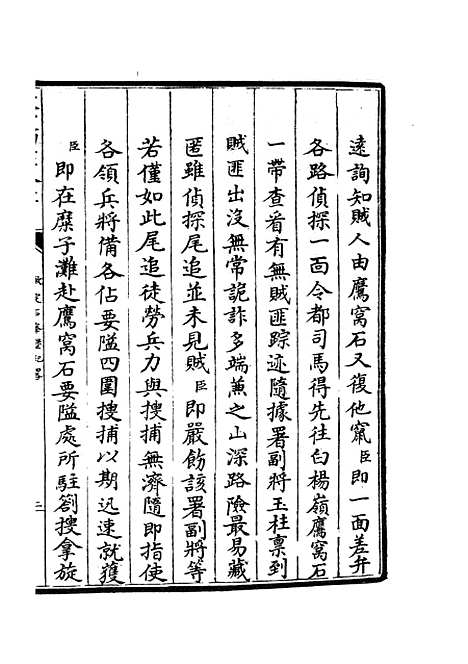 遠詢知賊人由鷹窩石又復他竄臣即一面差弁
各路偵探一面令都司馬得先往白楊嶺鷹窩石
一帶查看有無賊匪踪迹隨據署副將玉柱稟到
賊匪出沒無常詭詐多端兼之山深路險最易藏
匿雖偵探尾追並未見賊臣即嚴飭該署副將等
若僅如此尾追徒勞兵力與搜捕無濟隨即指使
各領兵將備各佔要隘四圍搜捕以期迅速就獲
臣即在糜子灘赴鷹窩石要隘處所駐劄搜拿旋